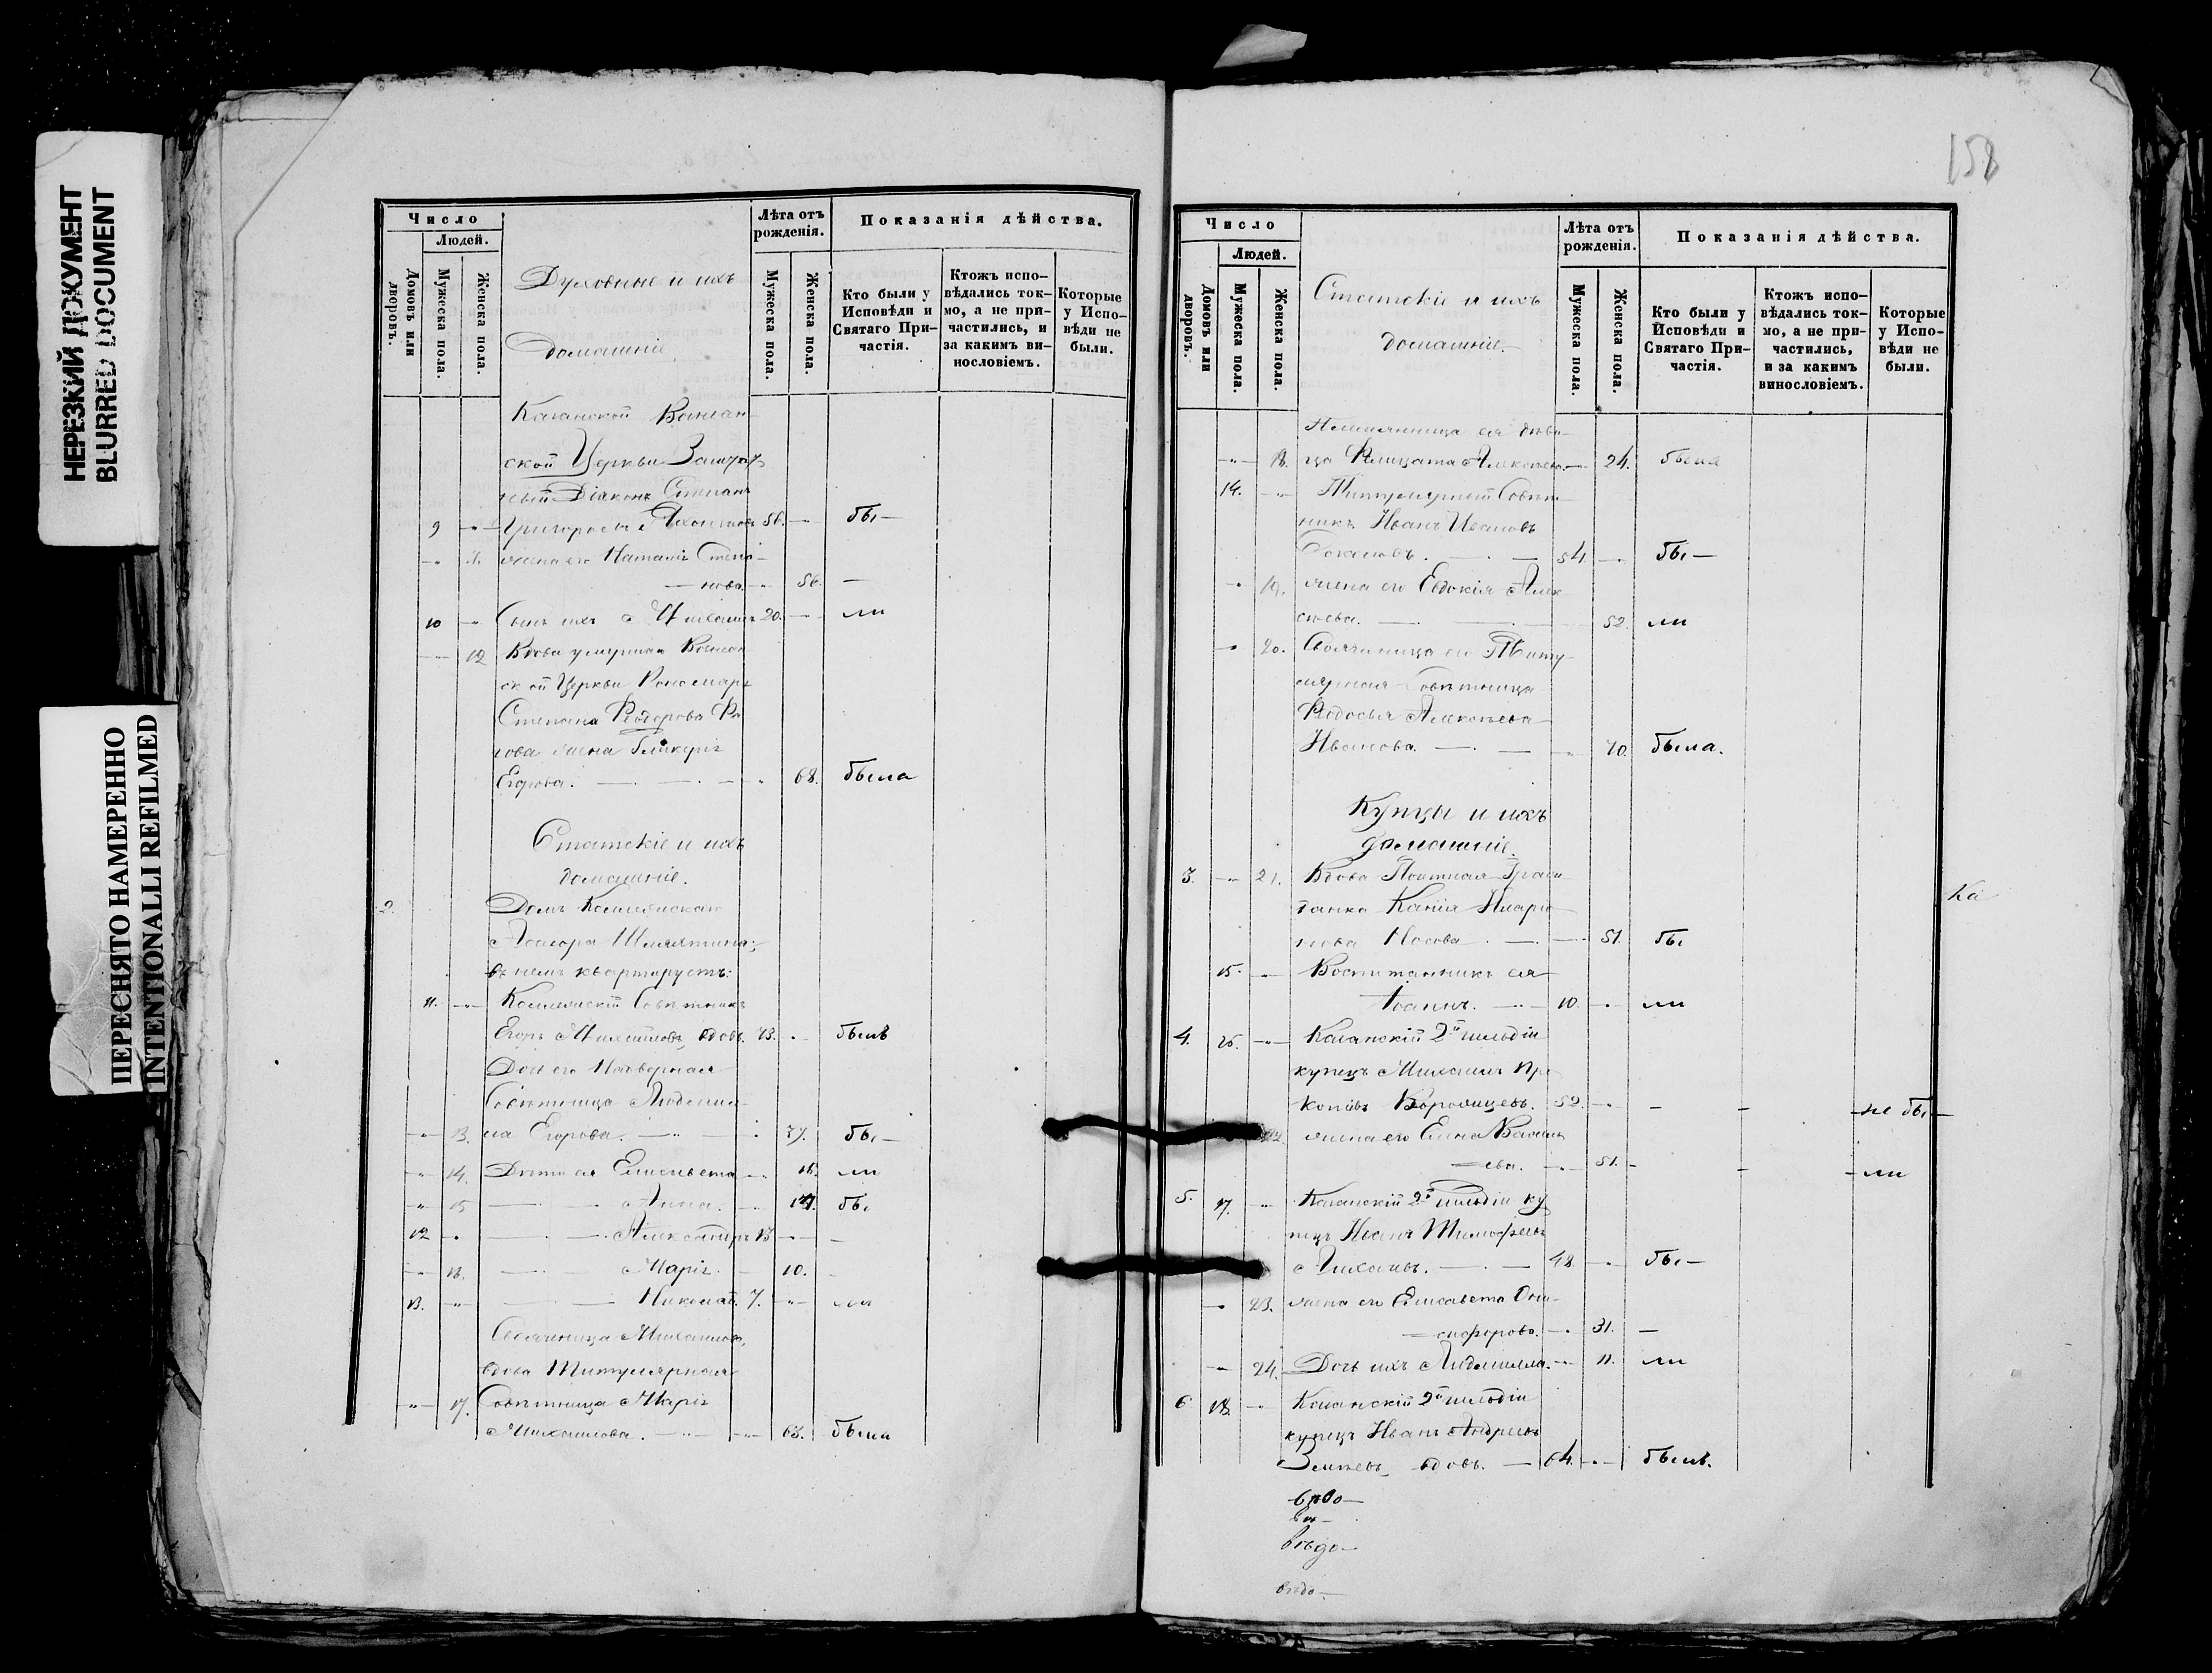 НЕРЕЗКИЙ ДОКУМЕНТ
BLURRED DOCUMENT
ПЕРЕСНЯТО НАМЕРЕННО
INTENTIONALLI REFILMED
Число
Людей.
Домовъ или дворовъ.
Мужеска пола.
Женска пола.
Духовные и ихъ
домашніе
Лѣта отъ рожденія.
Мужеска пола.
Женска пола.
Показанія дѣйства.
Кто были у Исповѣди и Святаго Причастія.
Ктожъ исповѣдались токмо, а не причастились, и за какимъ винословіемъ.
Которые у Исповѣди не были.
Казанской
ской Церкви
Діаконъ Степанъ
9 56. бы—
жена его
— нова. 56. —
10 Сынъ ихъ Михаилъ 20. ли
12 Вдова
ской Церкви Пономаря
Степана Ѳеодорова
жена Гликерія
Егорова. 68. была
Статскіе и ихъ
домашніе.
2. Домъ Коллежскаго
въ немъ квартируетъ:
11. Коллежскій Совѣтникъ
Егоръ Михайловъ, вдовъ. 73. былъ
Дочь его Надворная
Совѣтница Людмил—
13. ла Егорова. 37. бы—
14. Дѣти ея Елисавета 16. ли
15 Анна. бы
12 Александръ 13 —
16. Марія. 10. -
13. Николай. 7. ли
Михаилова,
вдова Титулярная
17. Совѣтница Марія
Михаилова. 63. была
158
Число
Людей.
Домовъ или дворовъ.
Мужеска пола.
Женска пола.
Статскіе и ихъ
домашніе.
Лѣта отъ рожденія.
Мужеска пола.
Женска пола.
Показанія дѣйства.
Кто были у Исповѣди и Святаго Причастія.
Ктожъ исповѣдались токмо, а не причастились, и за какимъ винословіемъ.
Которые у Исповѣди не были.
Племянница ея дѣви—
18. ца 24. была
14. Титулярный Совѣт—
никъ Иванъ Ивановъ
Соколовъ. 54. бы—
19. жена его Евдокія Алек—
сѣева. 52. ли
20. его Титу—
лярная Совѣтница
Ѳедосья Алексѣева
Иванова. 70. была.
Купцы и ихъ
домашніе.
3. 21. Вдова Почтная Граж—
данка Иларіо—
нова Носова 51. бы
15. Воспитанникъ ея
Іоаннъ. 10. ли
Ка
4. 16. Казанскій 2й гильдіи
купецъ Михаилъ Про—
52. - - не бы—
22 жена его Елена Василь—
ева. 51. - - ли
5. 17. Казанскій 2й гильдіи ку—
пецъ Иванъ Тимофѣевъ
48. бы—
23. жена его Елисавета Они—
сифорова. 31. —
24. Дочь ихъ Людмилла. 11. ли
6 18. Казанскій 2й гильдіи
купецъ Иванъ Андреевъ
вдовъ. 64. былъ.